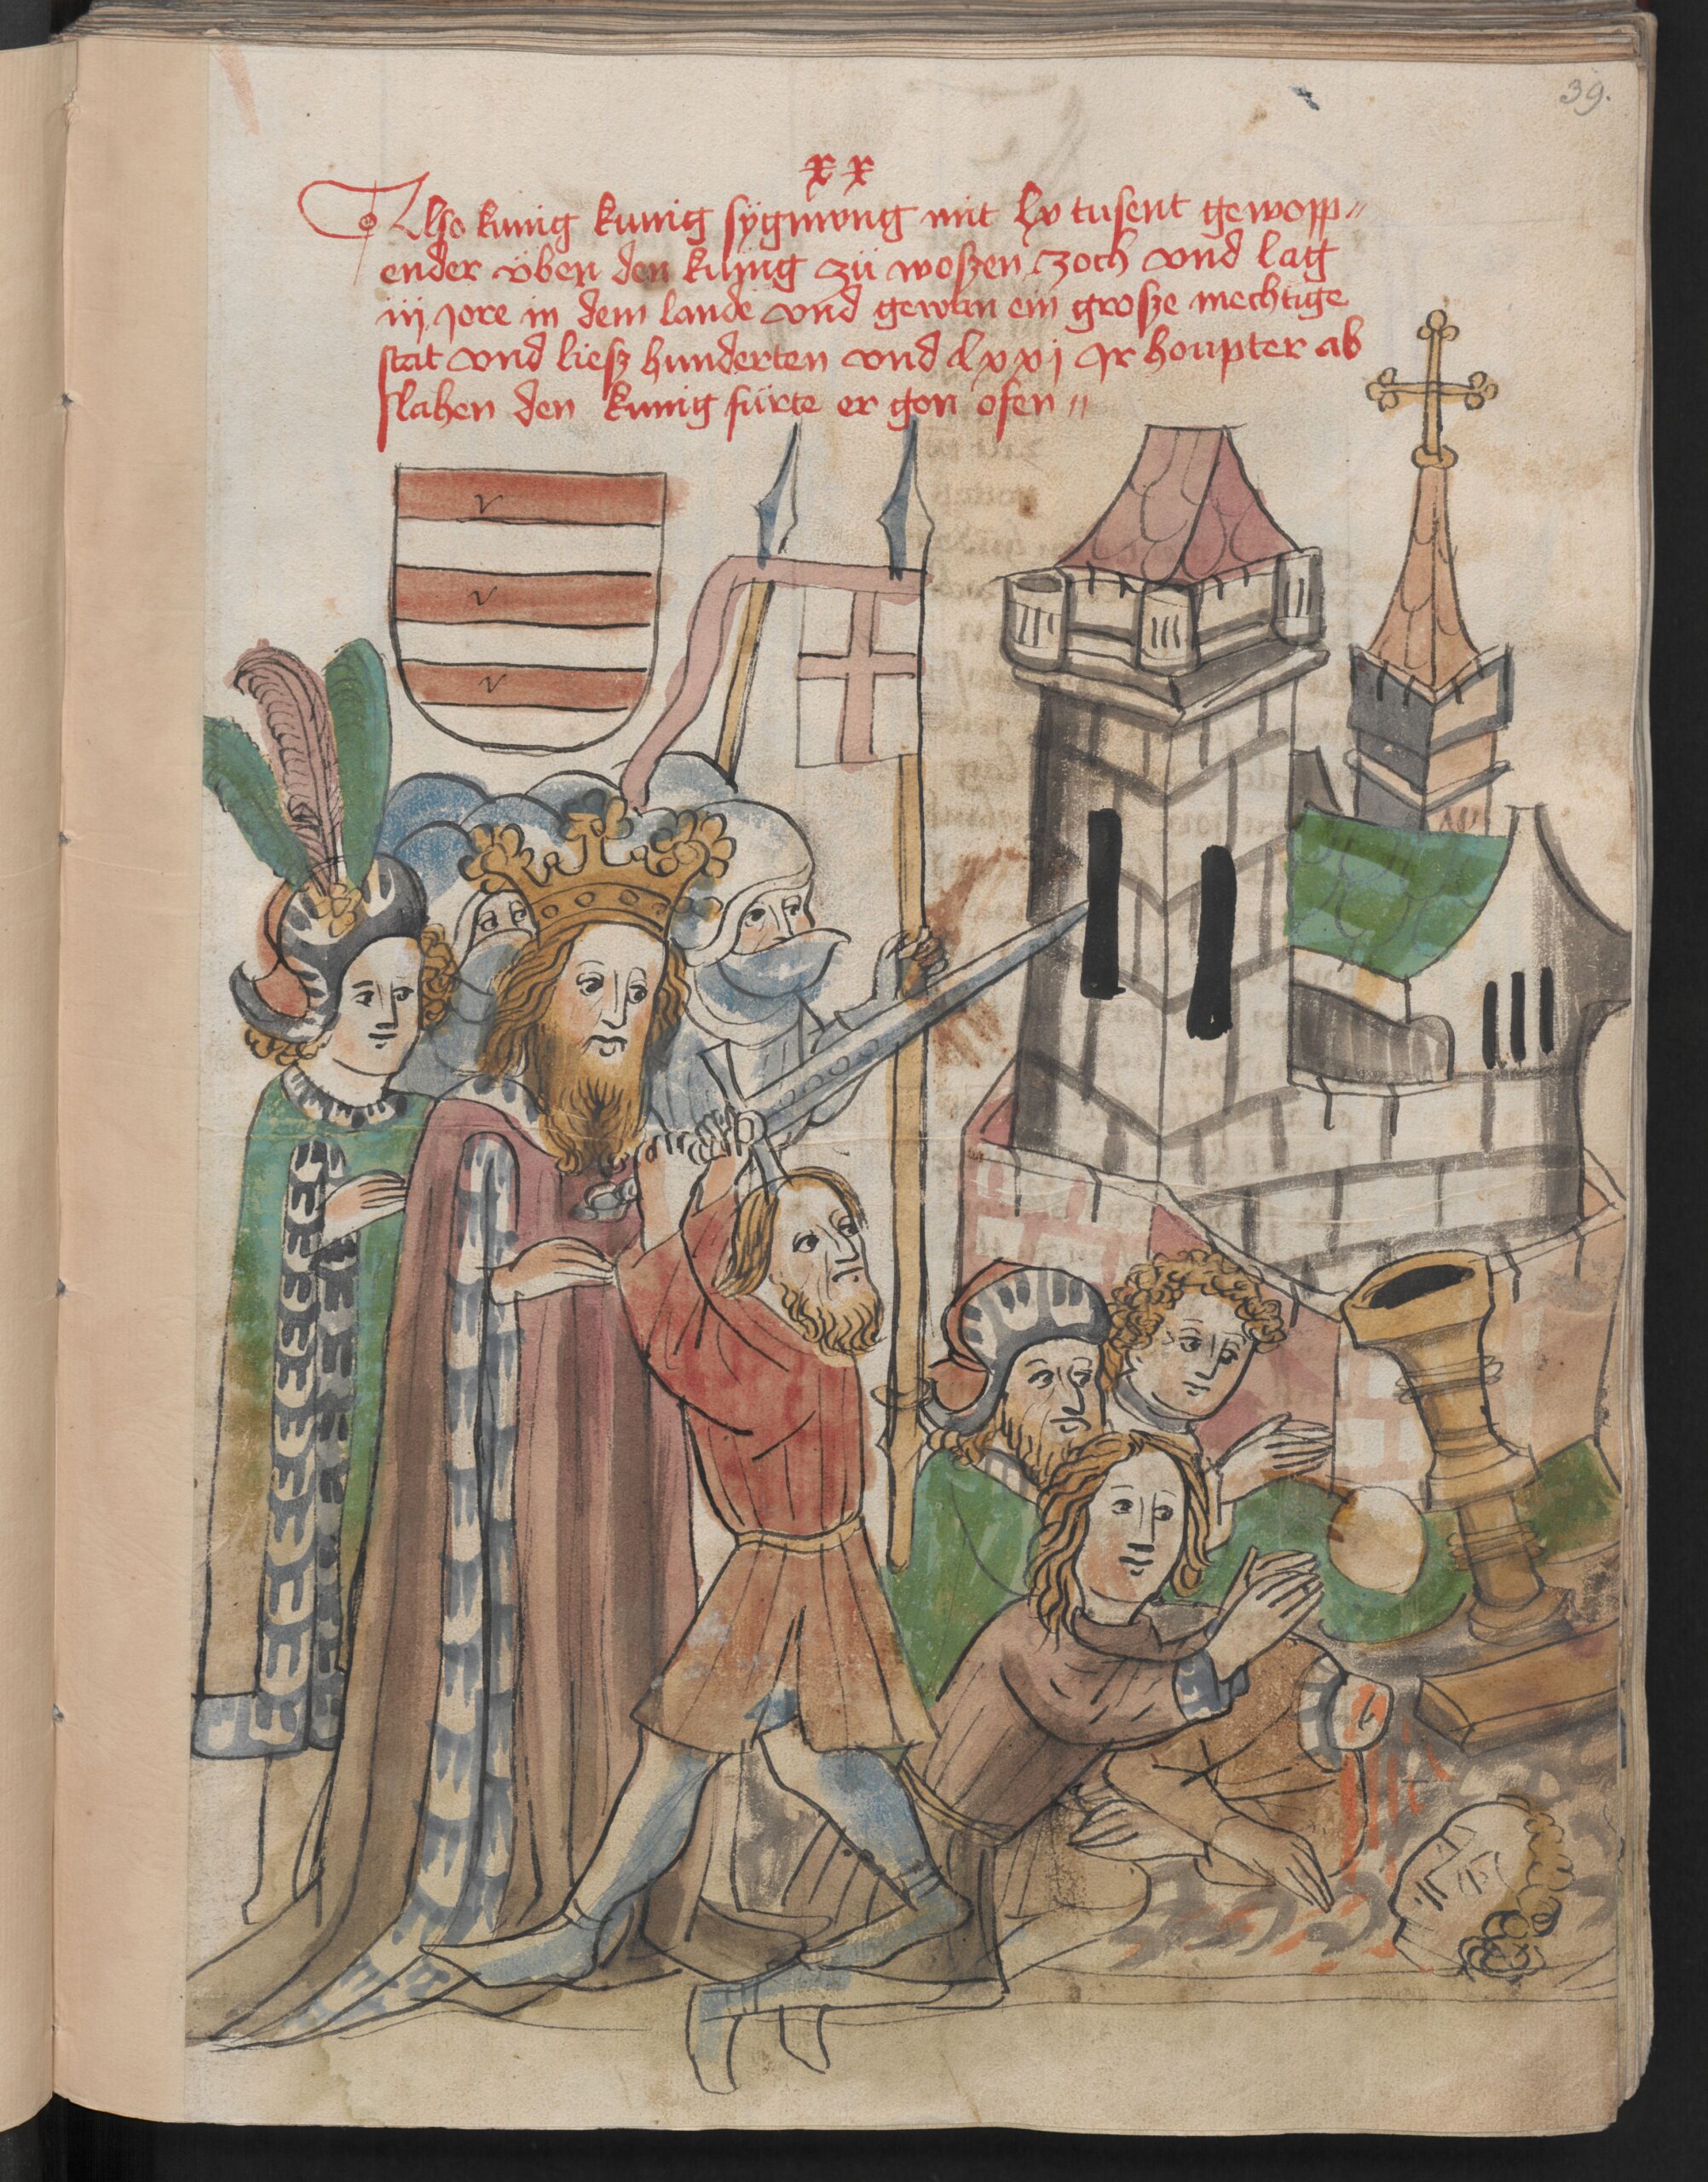 39.
xx
Also kunig kunig sygmong mit lv tusent gewopp〃
ender über den kunig zü woßen zoch vnd lag
iij jore in dem lande vnd gewan ein große mechtige
stat vnd liesz hunderten vnd lxxj Ir houpter ab
slahen den kunig fürte er gon ofen〃
v
v
v